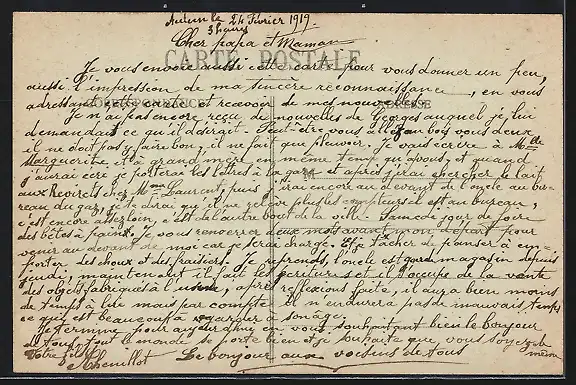 Autun le 24 Février 1919.
3 heures
Cher papa et Maman
CARTE POSTALE
Je vous envoie aussi cette carte pour vous donner un peu,
aussi l'impression de ma sincère reconnaissance, en vous
CORRESPONDANCE ADRESSE
adressant cette carte et recevoir de mes nouvelles.
Je n'ai pas encore reçu de nouvelles de Georges auquel je lui
demandait ce qu'il désirait. Peut-être vous allez au bois vous deux
il ne doit pas y faire bon, il ne fait que pleuvoir. Je vais écrire à Melle
Marguerite, et à grand mère en même temp qu'à vous, et quand
j'aurai écrit je porterai les lettres à la gare et après j'irai chercher le lait
aux Revirets chez Mme Laurent, puis j'irai encore au devant de l'oncle au bu-
reau du gaz, je te dirai qu'il ne relève plus les compteurs il est au bureau,
c'est encore assez loin, c'est de l'autre bout de la ville. Samedi jour de foire
des bêtes à Autun. Je vous renverrer deux mots avant mon départ pour
venir au devant de moi car je serai chargé. Et je tâcher de penser à em-
porter des choux et des fraisiers. Je reprends, l'oncle est garde magasin depuis
jeudi, maintenant il fait les écritures et il s'occupe de la vente
des objets fabriqués à l'usine, après réflexions faite, il aura bien moins
de temps à lui mais par compte il n'endurera pas de mauvais temps
ce qui est beaucoup à regarder à son âge.
Je termine pour aujourd'hui en vous souhaitant bien le bonjour
de tous, tout le monde se porte bien et je souhaite que vous soyez de
même
Votre fils
A Chemillot Le bonjour aux voisins de tous